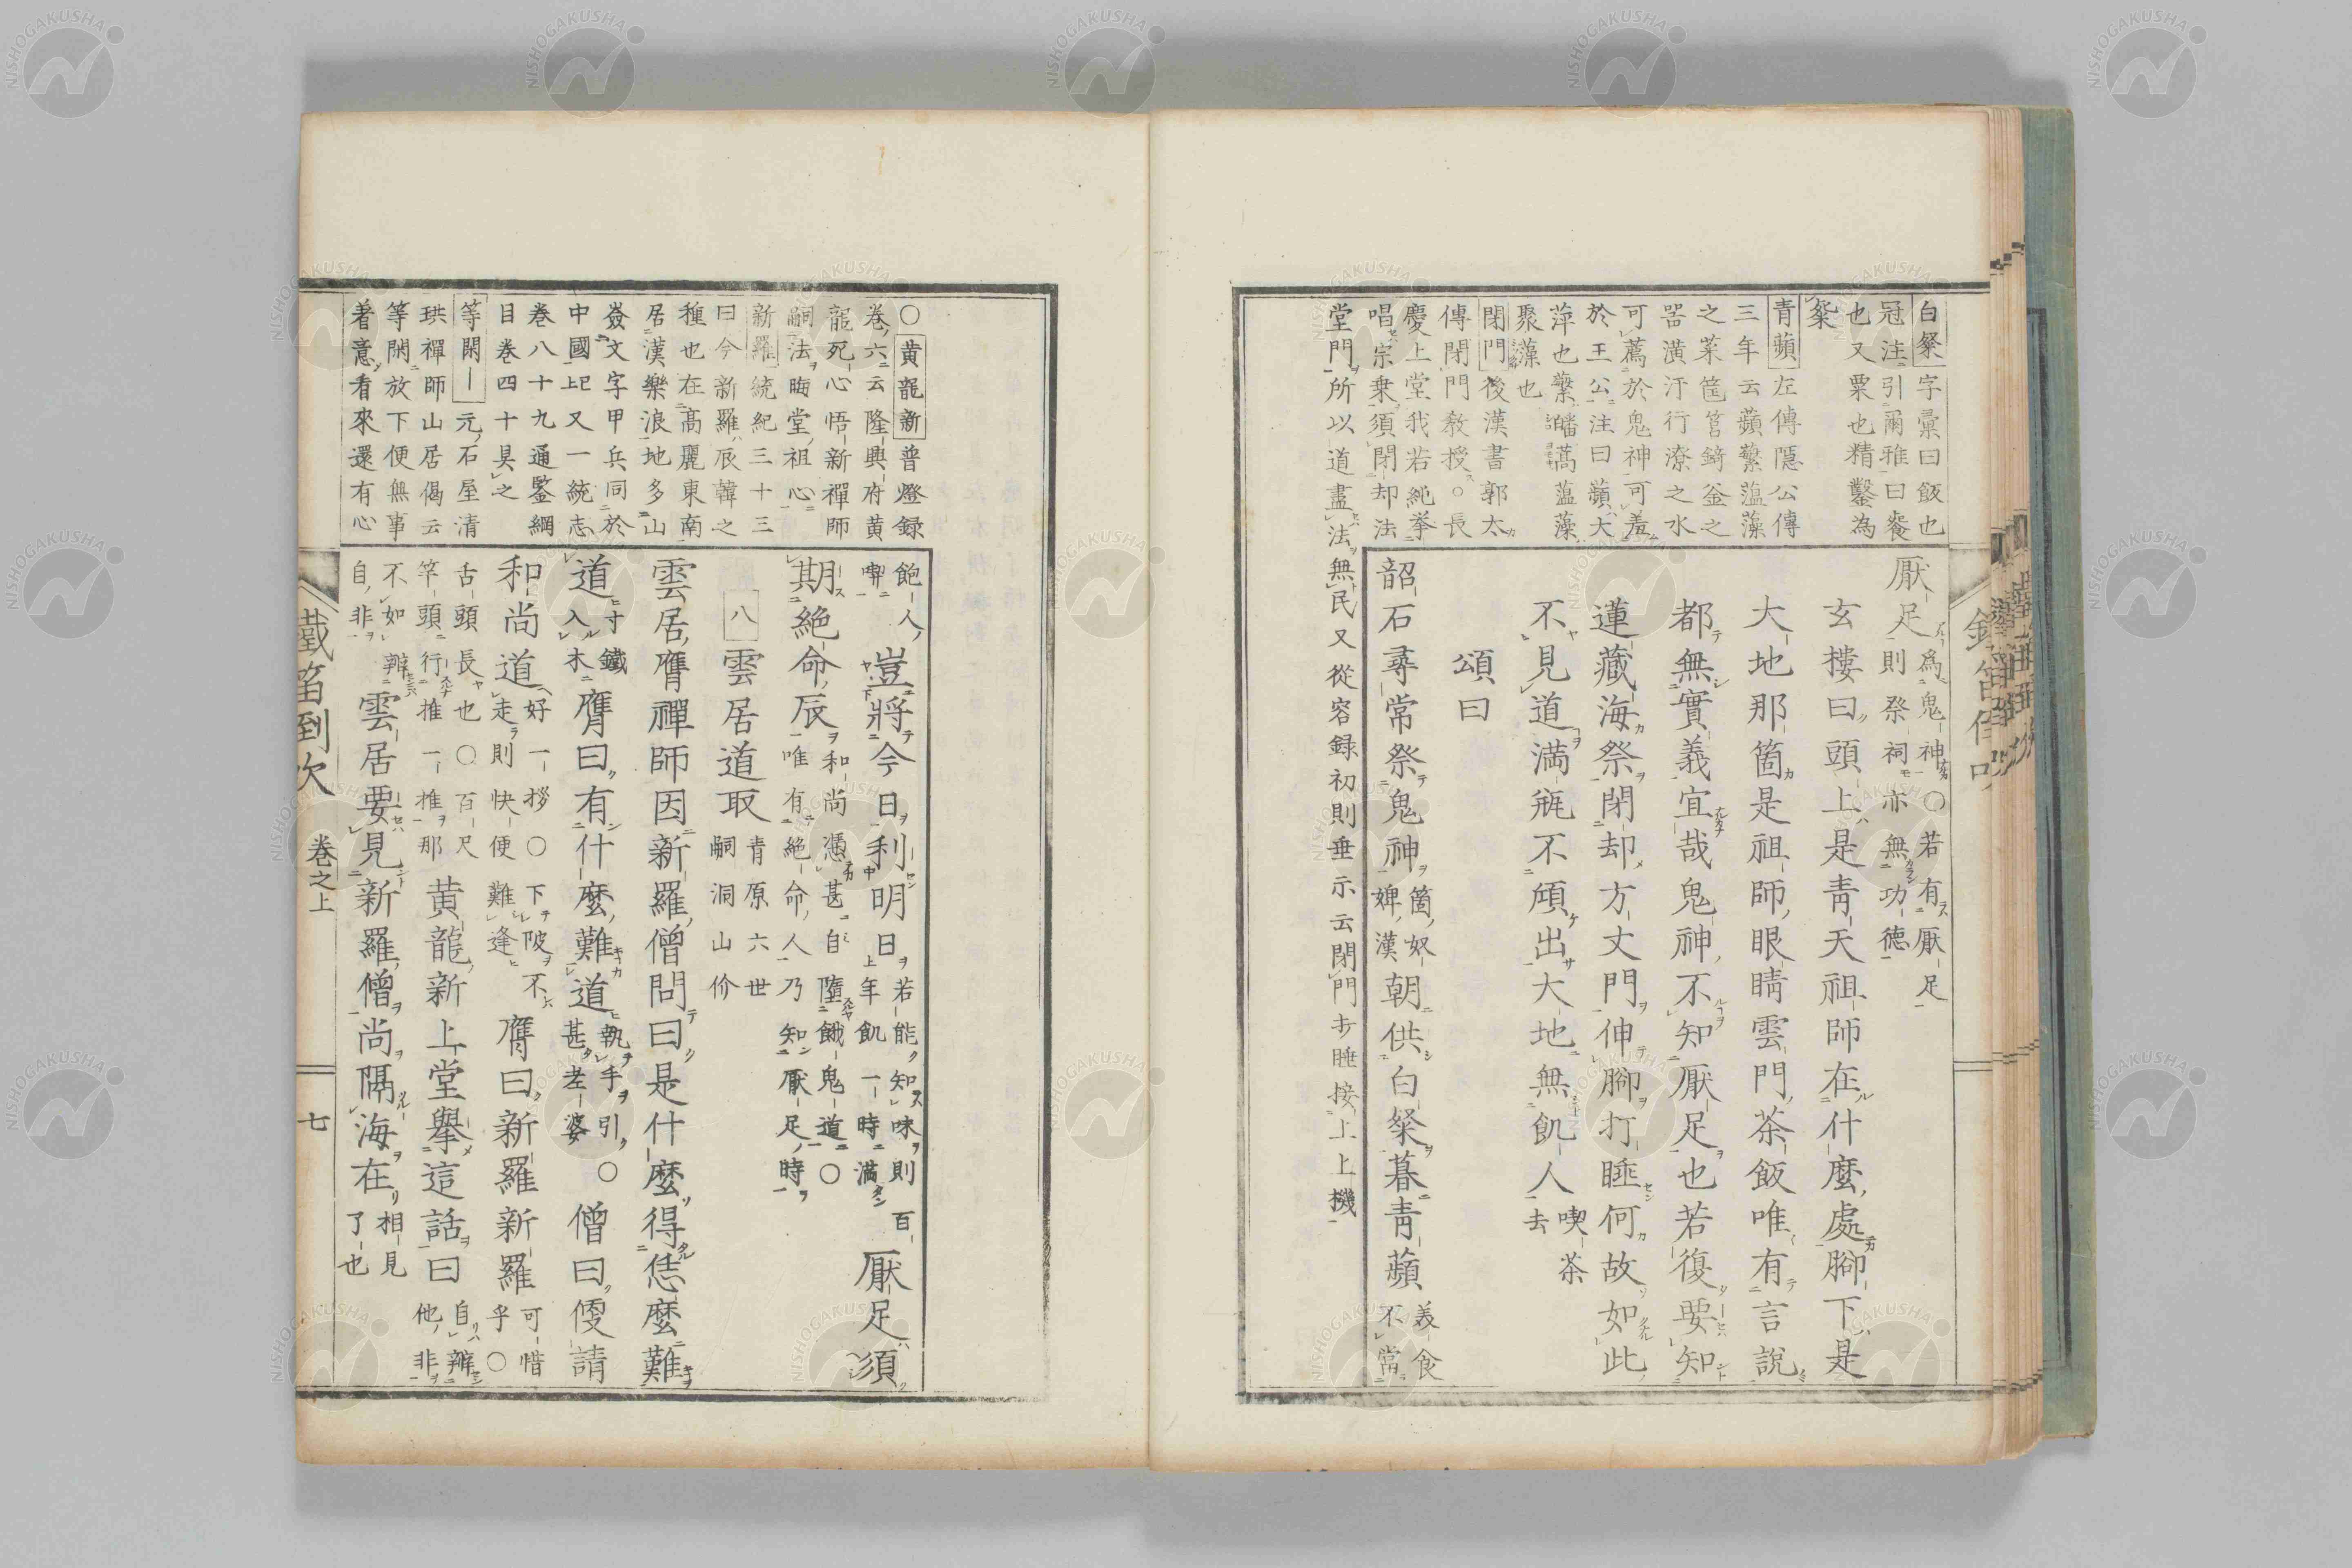 白粲字彙曰飯也
冠注引爾雅曰餐
也又粟也精鑿為
粲
青蘋左傳隱公傳
三年云蘋蘩薀藻
之菜筐筥錡釜之
噐潢汙行潦之水
可薦於鬼神可羞
於王公注曰蘋大
萍也蘩皤蒿薀藻
聚藻也
閉門後漢書郭太
傳閉門教授○長
慶上堂我若純挙
唱宗乗須閉却法
堂門所以道盡法無民又從容録初則垂示云閉門打睡接上上機
厭足為鬼神○若有厭足
則祭祠亦無功德
玄樓曰頭上是青天祖師在什麼處腳下是
大地那箇是祖師眼睛雲門茶飯唯有言說
都無實義宜哉鬼神不知厭足也若復要知
蓮藏海祭閉却方丈門伸腳打睡何故如此
不見道満瓶不傾出大地無飢人喫茶
去
頌曰
韶石尋常祭鬼神箇奴
婢漢朝供白粲暮青蘋義食
不當
○黄龍新普燈録
卷六云隆興府黄
龍死心悟新禪師
嗣法晦堂祖心
新羅統紀三十三
曰今新羅辰韓之
種也在高麗東南
居漢樂浪地多山
㒒文字甲兵同於
中國上又一統志
卷八十九通鑒綱
目卷四十具之
等閑｜元石屋清
珙禪師山居偈云
等閑放下便無事
着意看來還有心
飽人
喫豈將今日利明日若能知味則百
年飢一時満厭足須
期絶命辰和尚憑甚自墮餓鬼道○
唯有絶命人乃知厭足時
八雲居道取青原六世
嗣洞山价
雲居膺禪師因新羅僧問曰是什麼得恁麼難
道寸鐵
入木膺曰有什麼難道執手引○
甚老婆僧曰便請
和尚道好一拶○下陂不
走則快便難逢膺曰新羅新羅可惜
乎○
舌頭長也○百尺
竿頭行推一推那黄龍新上堂擧這話曰自辧
他非
不如辧
自非雲居要見新羅僧尚隔海在相見
了也
鐵笛倒吹
卷之上
七